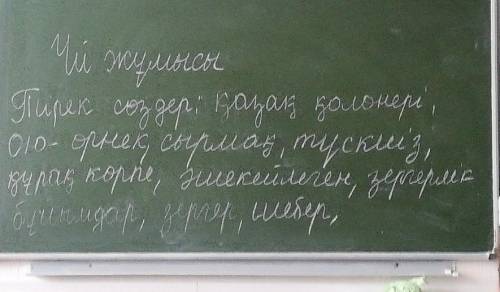 Үй жұмысы
Тірек сөздер: Қазақ қолөнері,
ою-өрнек, сырмақ, тускиіз,
құрақ көрпе, әшекейлеген, зергерлік
бұйымдар, зергер, шебер,